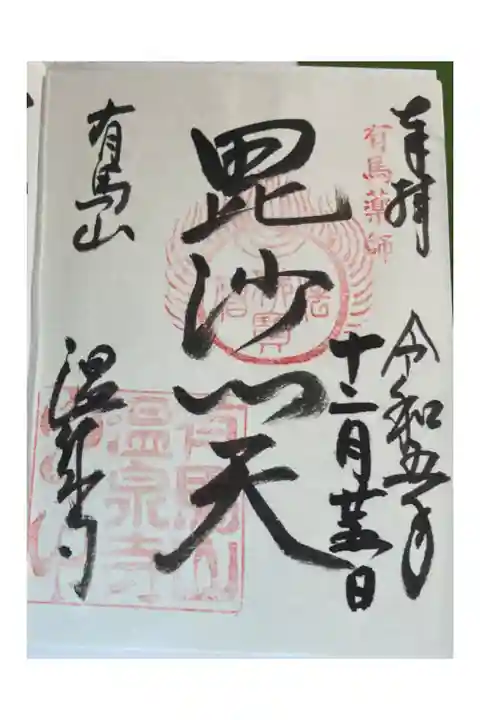 奉拝
有馬薬師
令和五年
十二月廿五日
毘沙門天
佛法僧寶
有馬山
温泉寺
有馬山
温泉寺